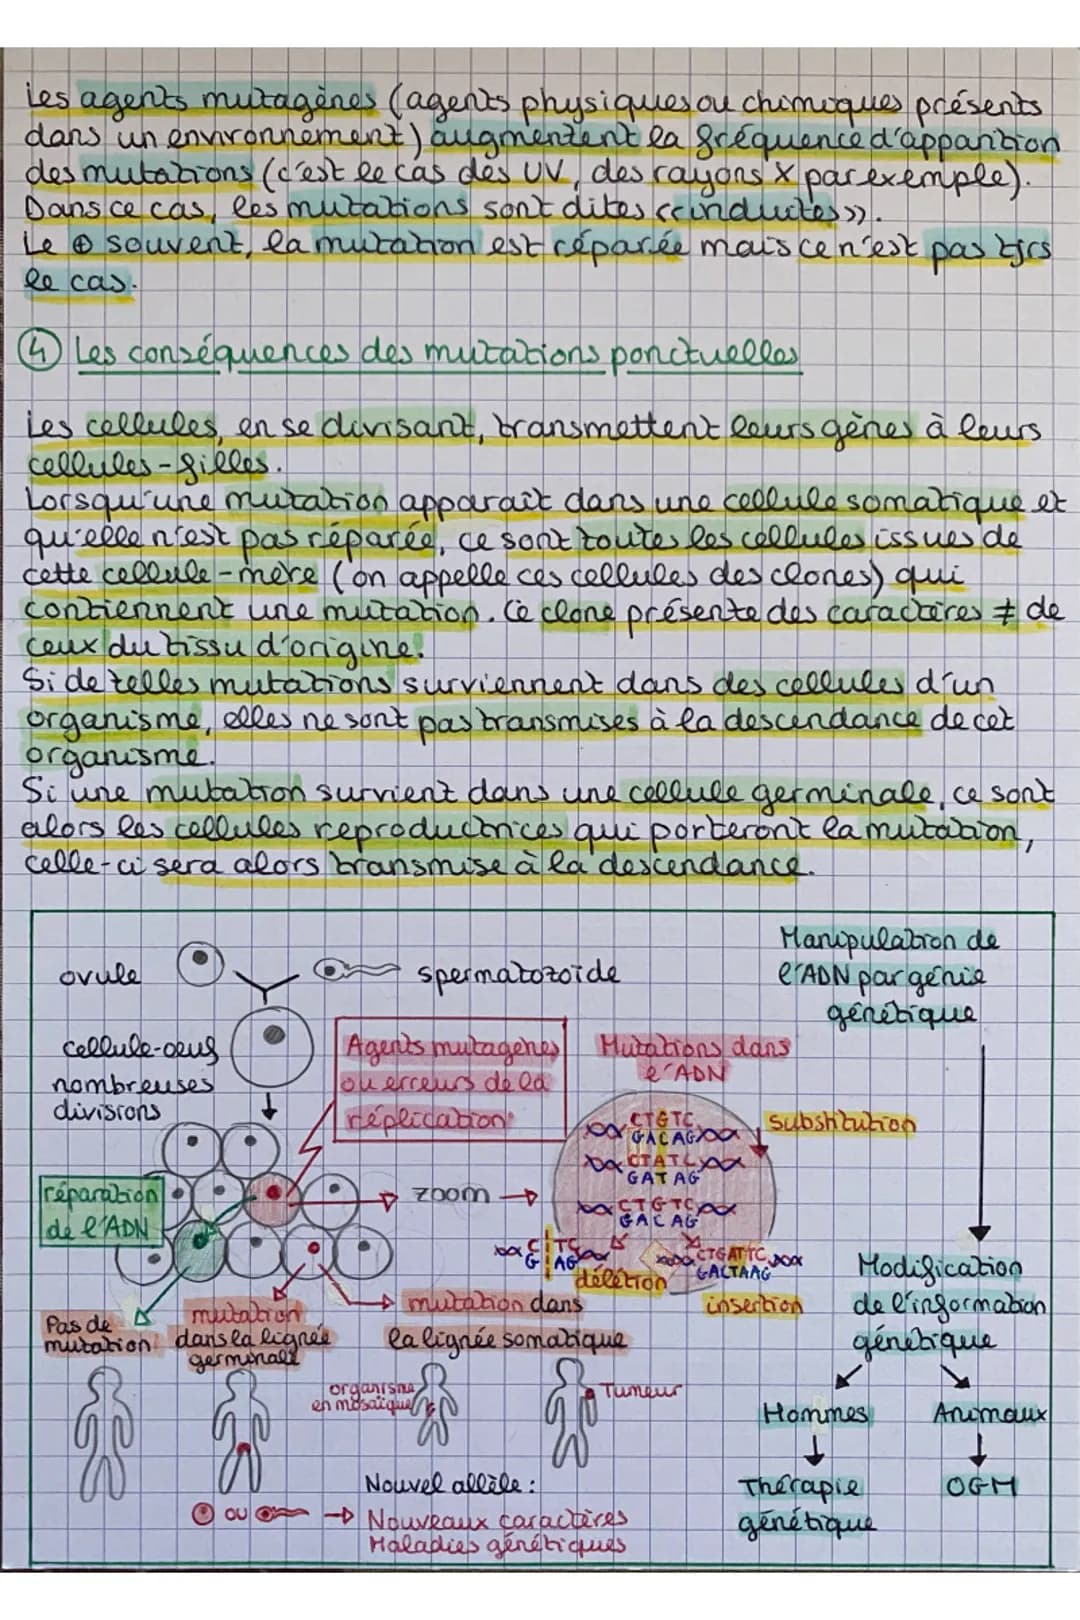 Les agents mutagènes (agents physiques ou chimiques présents
dans un environnement) augmentent la fréquence d'apparition
des mutations (c'est le cas des UV, des rayons X par exemple).
Dans ce cas, les mutations sont dites «induites».
Le ⊕ souvent, la mutation est réparée mais ce n'est pas tjrs
le cas.
④ Les conséquences des mutations ponctuelles
Les cellules, en se divisant, transmettent leurs gènes à leurs
cellules-filles.
Lorsqu'une mutation apparait dans une cellule somatique et
qu'elle n'est pas réparée, ce sont toutes les cellules issues de
cette cellule-mère (on appelle ces cellules des clones) qui
contiennent une mutation. Ce clone présente des caractères ≠ de
ceux du tissu d'origine.
Si de telles mutations surviennent dans des cellules d'un
organisme, elles ne sont pas transmises à la descendance de cet
organisme.
Si une mutation survient dans une cellule germinale, ce sont
alors les cellules reproductrices qui porteront la mutation,
celle-ci sera alors transmise à la descendance.
ovule
spermatozoïde
Manipulation de
l'ADN par génie
génétique
cellule-oeuf
nombreuses
divisions
Agents mutagènes
ou erreurs de la
réplication
Mutations dans
l'ADN
CTGTC
GACAG
substitution
CTATC
GATAG
CTGTC
GACAG
réparation
de l'ADN
zoom
C TC
G AG
délétion
CTGATTC
GACTAAG
insertion
Modification
de l'information
génétique
Pas de
mutation
mutation
dans la lignée
germinale
mutation dans
la lignée somatique
organisme
en mosaïque
Tumeur
Hommes
Animaux
Thérapie
génétique
OGM
Nouvel allèle :
ou → Nouveaux caractères
Maladies génétiques